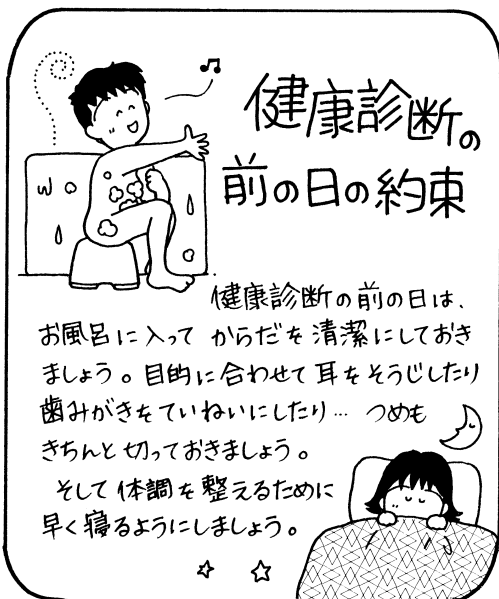 健康診断の
前の日の約束
健康診断の前の日は、
お風呂に入って からだを清潔にしておき
ましょう。目的に合わせて耳をそうじしたり
歯みがきをていねいにしたり… つめも
きちんと切っておきましょう。
そして体調を整えるために
早く寝るようにしましょう。